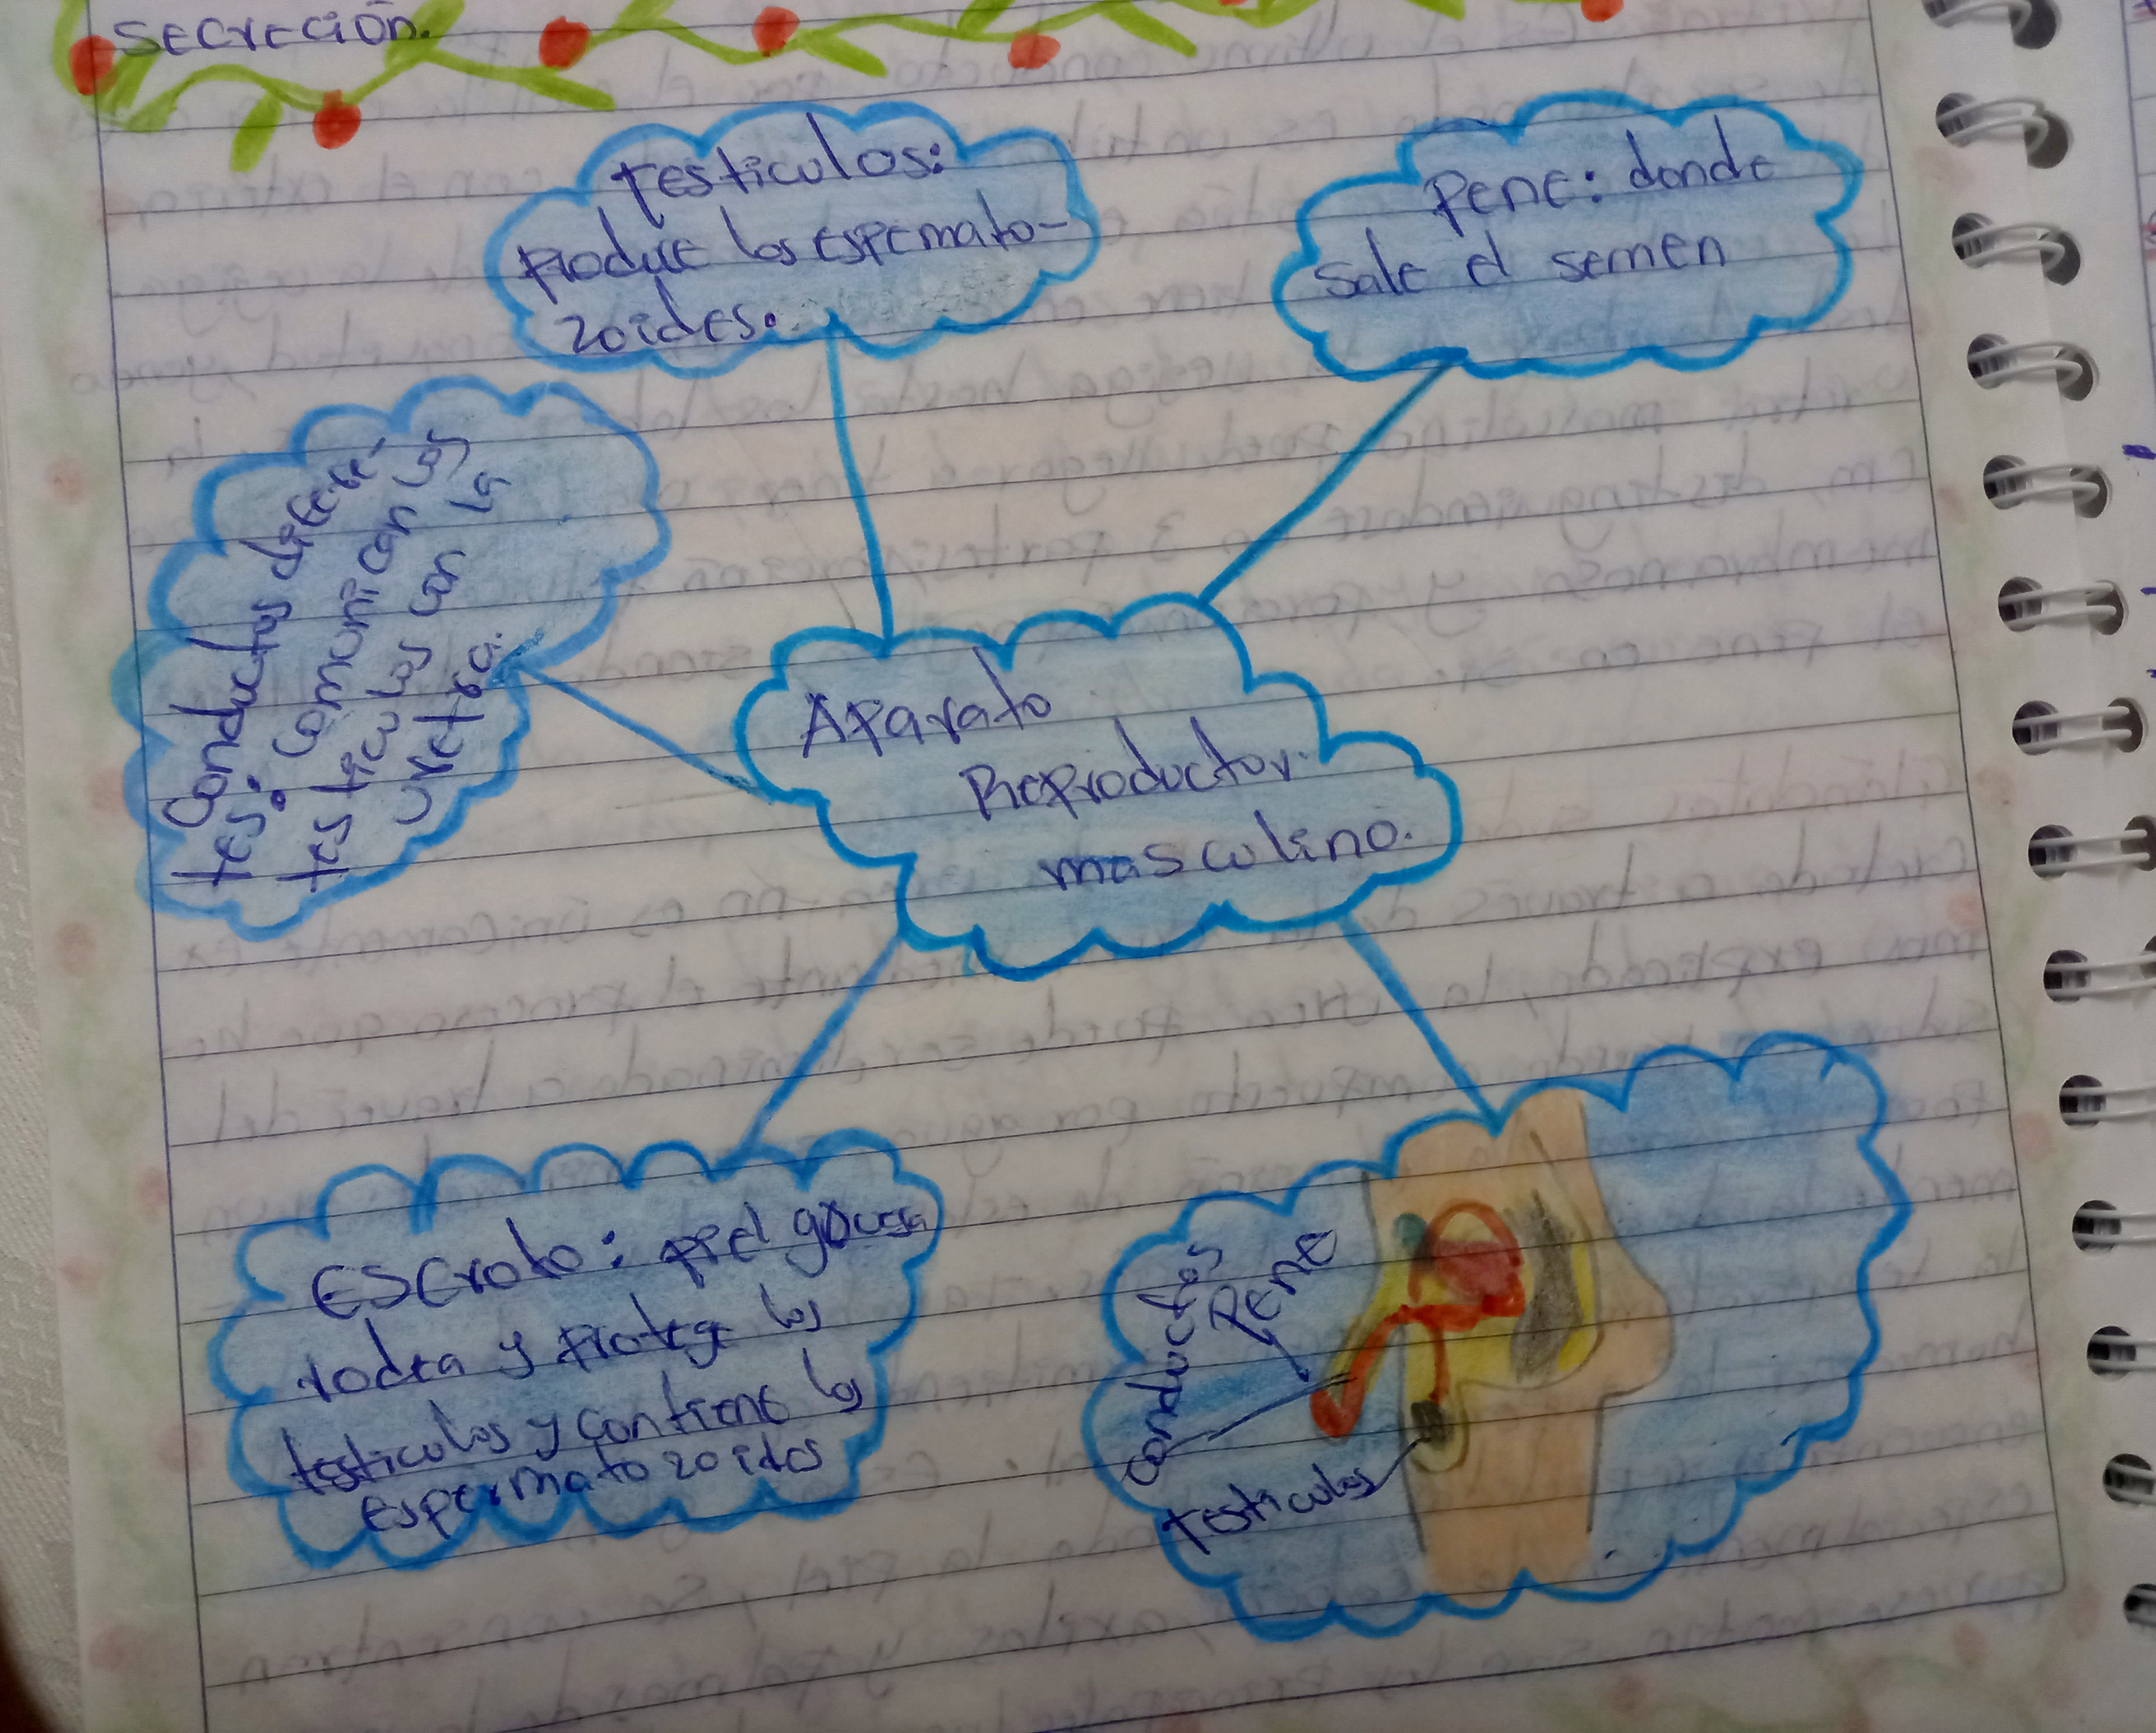 secreción.
testiculos:
produce los espemato-
zoides.
Pene: donde
sale el semen
conductos diferé-
tes: comunican los
testiculos con la
uretra.
Aparato
Reproductor.
masculino.
Escroto: piel
rodea y protege los
testiculos y contiene los
espermatozoides
conductos
Pene
testiculos